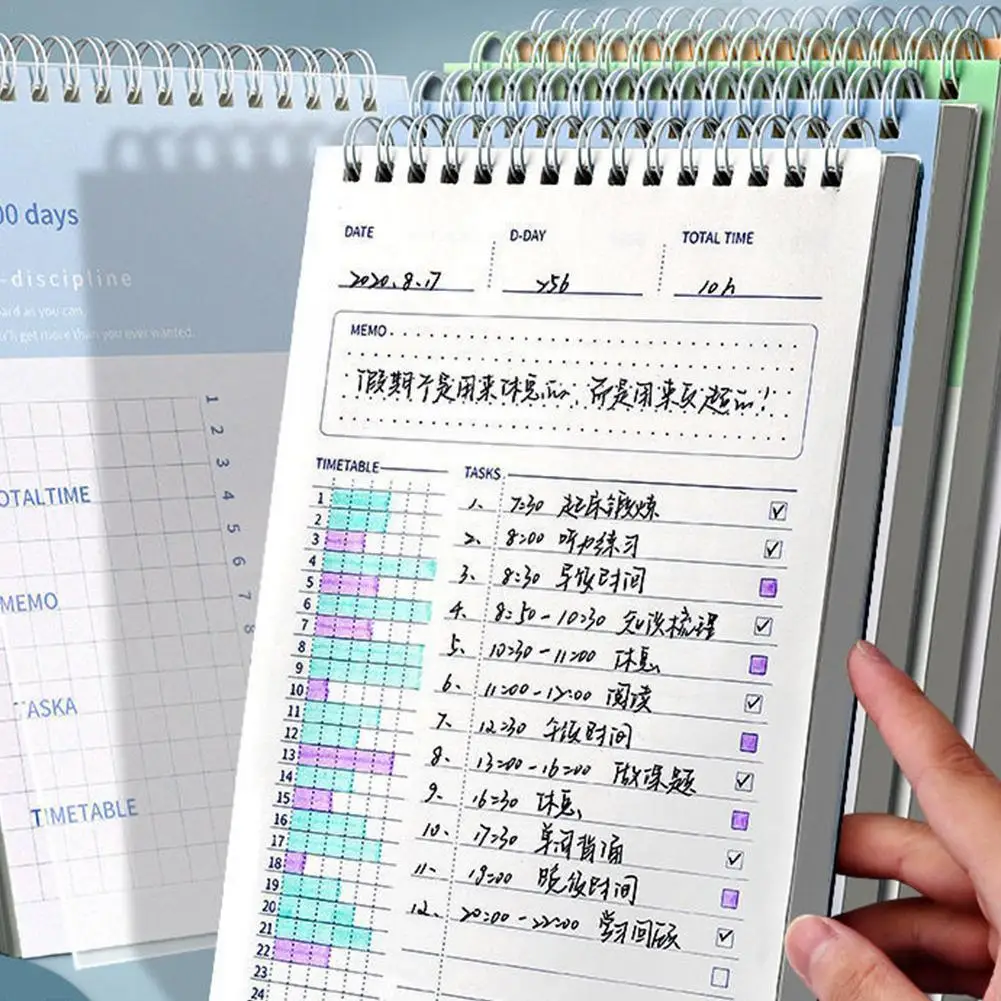 00 days
-discipline
ard as you can,
'll get more than you ever wanted.
1
2
3
4
5
6
7
8
OTALTIME
MEMO
TASKA
TIMETABLE
DATE D-DAY TOTAL TIME
2020.8.17 256 10h
MEMO
假期不是用来休息的，而是用来反超的！
TIMETABLE TASKS
1
2
3
4
5
6
7
8
9
10
11
12
13
14
15
16
17
18
19
20
21
22
23
24
1、 7:30 起床锻炼
2、 8:00 听力练习
3、 8:30 早饭时间
4、 8:50-10:30 知识梳理
5、 10:30-11:00 休息
6、 11:00-12:00 阅读
7、 12:30 午饭时间
8、 13:00-16:00 做课题
9、 16:30 休息
10、 17:30 单词背诵
11、 19:00 晚饭时间
12、 20:00-22:00 学习回顾